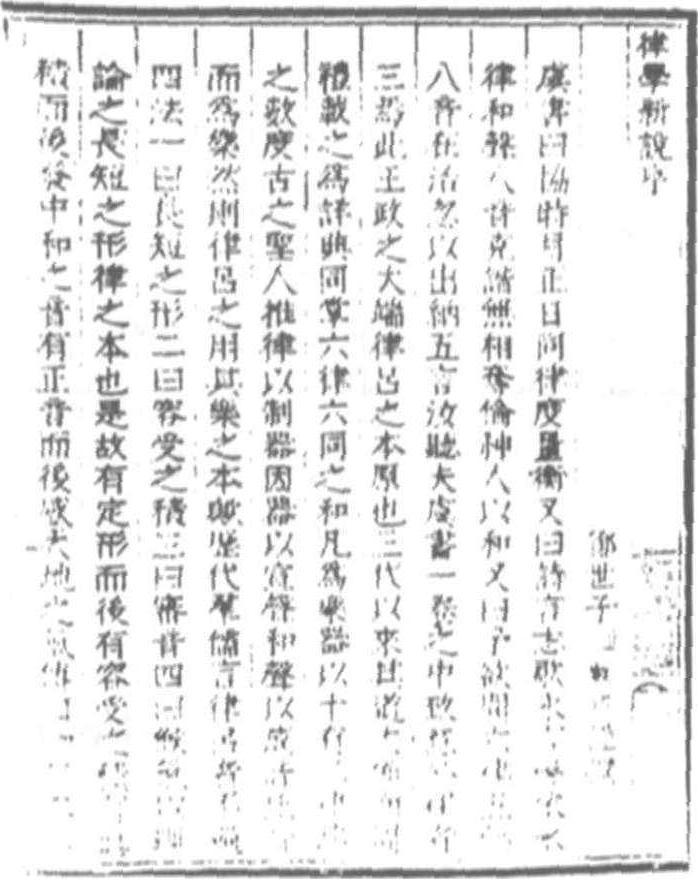 律學新說序
鄭世子
虞書曰協時月正日同律度量衡又曰詩言志歌永言聲依永
律和聲八音克諧無相奪倫神人以和又曰予欲聞六律五聲
八音在治忽以出納五言汝聽夫虞書一篇之中
三焉此王政之大端律呂之本原也三代以來
禮載之爲詳典同掌六律六同之和凡爲樂器以十有
之數度古之聖人推律以制器因器以宣聲和聲以成音
而爲樂然則律呂之用其樂之本歟歷代羣儒言律呂
四法一曰長短之形二曰容受之積三曰審音四曰候氣
論之長短之形律之本也是故有定形而後有容受之積
積而後發中和之音有正音而後感天地之氣